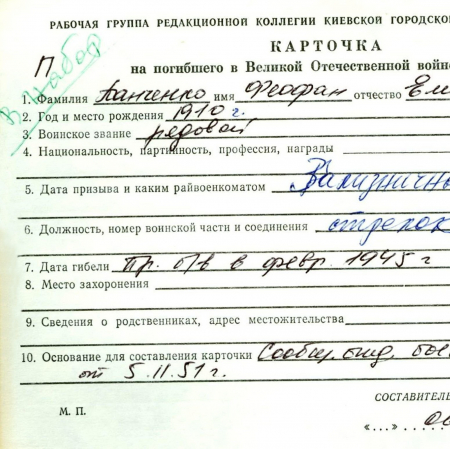 РАБОЧАЯ ГРУППА РЕДАКЦИОННОЙ КОЛЛЕГИИ КИЕВСКОЙ ГОРОДСКО
КАРТОЧКА
на погибшего в Великой Отечественной войн
П
В набор
1. Фамилия Панченко имя Феофан отчество Ем
2. Год и место рождения 1910 г.
3. Воинское звание рядовой
4. Национальность, партийность, профессия, награды
5. Дата призыва и каким райвоенкоматом Зализнично
6. Должность, номер воинской части и соединения стрелок
7. Дата гибели пр. б/в в февр. 1945 г
8. Место захоронения
9. Сведения о родственниках, адрес местожительства
10. Основание для составления карточки Сообщ.
от 5.11.51 г.
М. П.
СОСТАВИТЕЛЬ
«...»